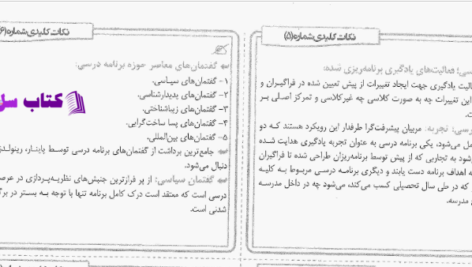 نکات کلیدی شماره (۵)
سی: فعالیت‌های یادگیری برنامه‌ریزی شده:
الیت یادگیری جهت ایجاد تغییرات از پیش تعیین شده در فراگیران و
این تغییرات چه به صورت کلاسی چه غیرکلاسی و تمرکز اصلی بر
ت.
رسی: تجربه. مربیان پیشرفت‌گرا طرفدار این رویکرد هستند که دو
مل می‌شود. یکی برنامه درسی به عنوان تجربه یادگیری هدایت شده
شود به تجاربی که از پیش توسط برنامه‌ریزان طراحی شده تا فراگیران
به اهداف برنامه دست یابند و دیگری برنامه درسی مربوط به کلیه
که در طی سال تحصیلی کسب می‌کند، می‌شود چه در داخل مدرسه
مدرسه.
نکات کلیدی شماره (۶
گفتمان‌های معاصر حوزه برنامه درسی:
۱- گفتمان‌های سیاسی.
۲- گفتمان‌های پدیدارشناسی.
۳- گفتمان‌های زیباشناختی.
۴- گفتمان‌های پسا ساخت‌گرایی.
۵- گفتمان‌های بین‌المللی.
جامع‌ترین برداشت از گفتمان‌های برنامه درسی توسط پاینار، رینولدز
دنبال می‌شود.
گفتمان سیاسی: از پر فرازترین جنبش‌های نظریه‌پردازی در عرصه
درسی است که معتقد است درک کامل برنامه تنها با توجه به بستر در برگ
شدنی است.
کتاب سل